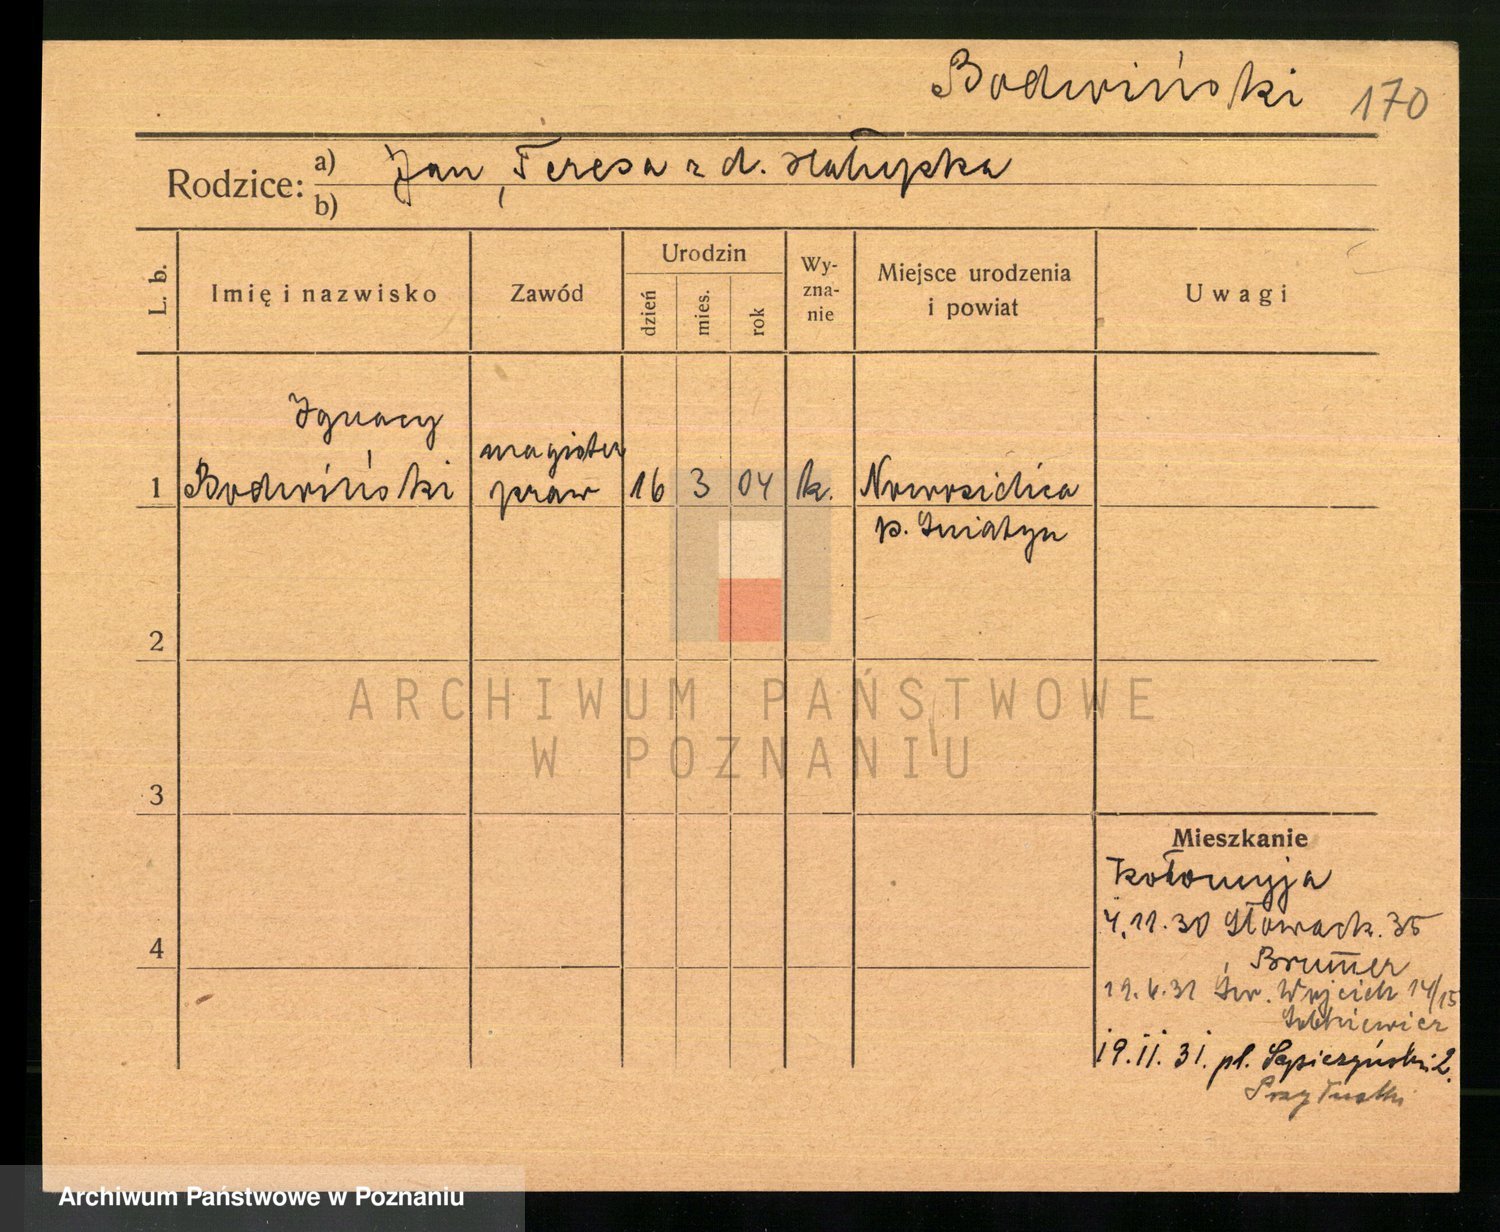 Bodwiński 170
Rodzice: a) Jan, Teresa z d. Hałupka
b)
L. b. Imię i nazwisko Zawód Urodzin dzień mies. rok Wyznanie Miejsce urodzenia i powiat Uwagi
Ignacy magister
1 Bodwiński praw 16 3 04 k. Nowosielica
p. Śniatyn
2
ARCHIWUM PAŃSTWOWE
W POZNANIU
3
Mieszkanie
Kołomyja
4.11.30 Słowack. 35
4 Brummer
Św. Wojciech 14/15
19.II.31. pl. Sapieżyński 2.
Archiwum Państwowe w Poznaniu